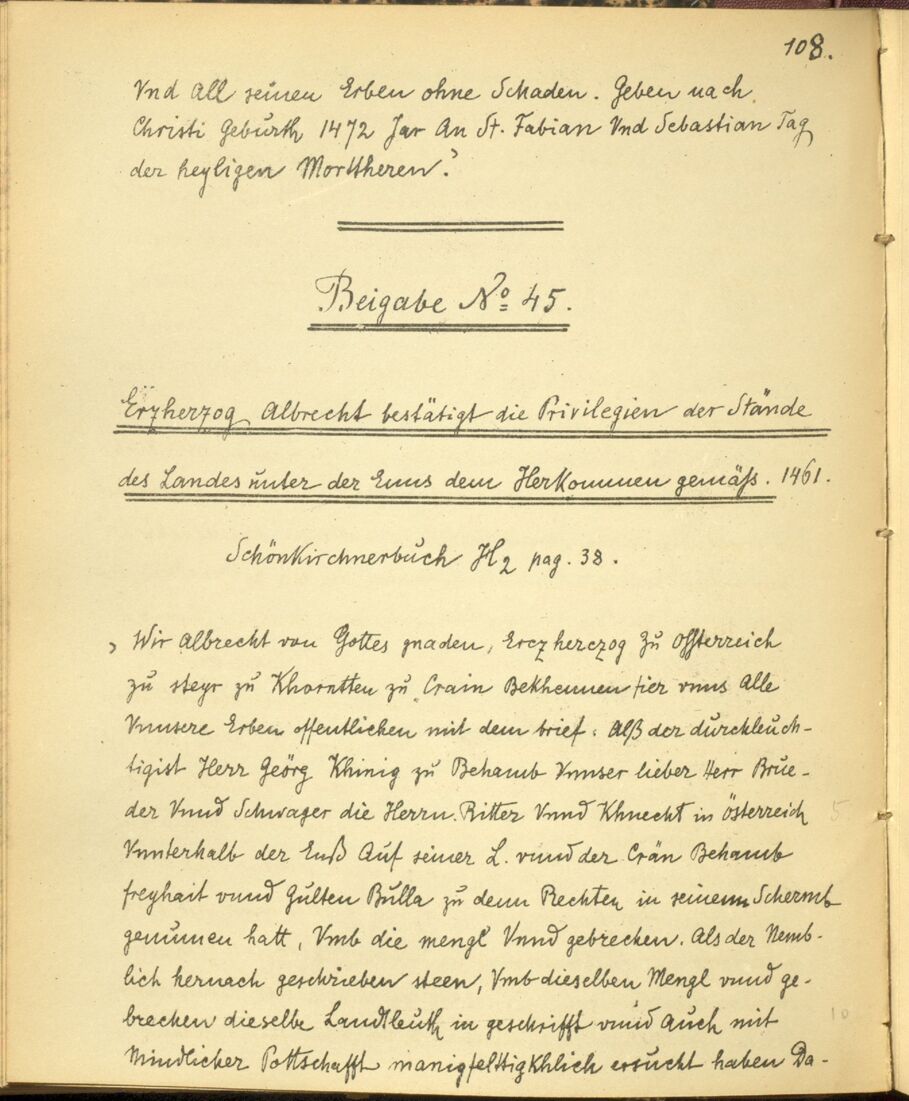 108.
Vnd All seinen Erben ohne Schaden. Geben nach
Christi Geburth 1472 Jar An St. Fabian Vnd Sebastian Tag
der heyligen Morttheren.
Beigabe No 45.
Erzherzog Albrecht bestätigt die Privilegien der Stände
des Landes unter der Enns dem Herkommen gemäß. 1461.
Schönkirchnerbuch H2 pag. 38.
Wir Albrecht von Gottes gnaden, Erczherczog zu Ossterreich
zu steyr zu Khorntten zu Crain Bekhennen fier vnns Alle
Vnnsere Erben offentlichen mit dem brief: Alß der durchleuch-
tigist Herr Geörg Khinig zu Behamb Vnnser lieber Herr Brue-
der Vnnd Schwager die Herrn Ritter Vnnd Khnecht in Österreich
5
Vnnterhalb der Enß Auf seiner L. vnnd der Crän Behamb
freyhait vnnd Gulten Bulla zu denn Rechten in seinenn Schermb
genumen hatt, Vmb die mengl Vnnd gebrechen. Als der Nemb-
lich hernach geschrieben steen, Vmb dieselben Mengl vnnd ge-
brechen dieselbe Landtleuth in geschrifft vnnd Auch mit
10
Mindlicher Pottschafft manigfelttigkhlich ersucht haben Da-